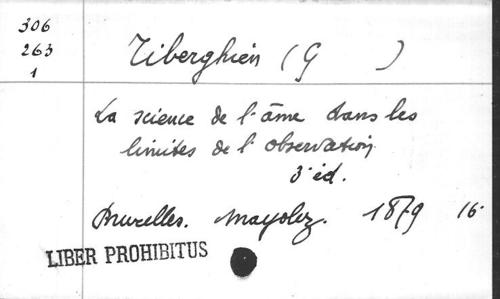 306
263
1
Tiberghien (G )
La science de l'âme dans les
limites de l'observation.
3e éd.
Bruxelles. Mayolez. 1879 16°
LIBER PROHIBITUS